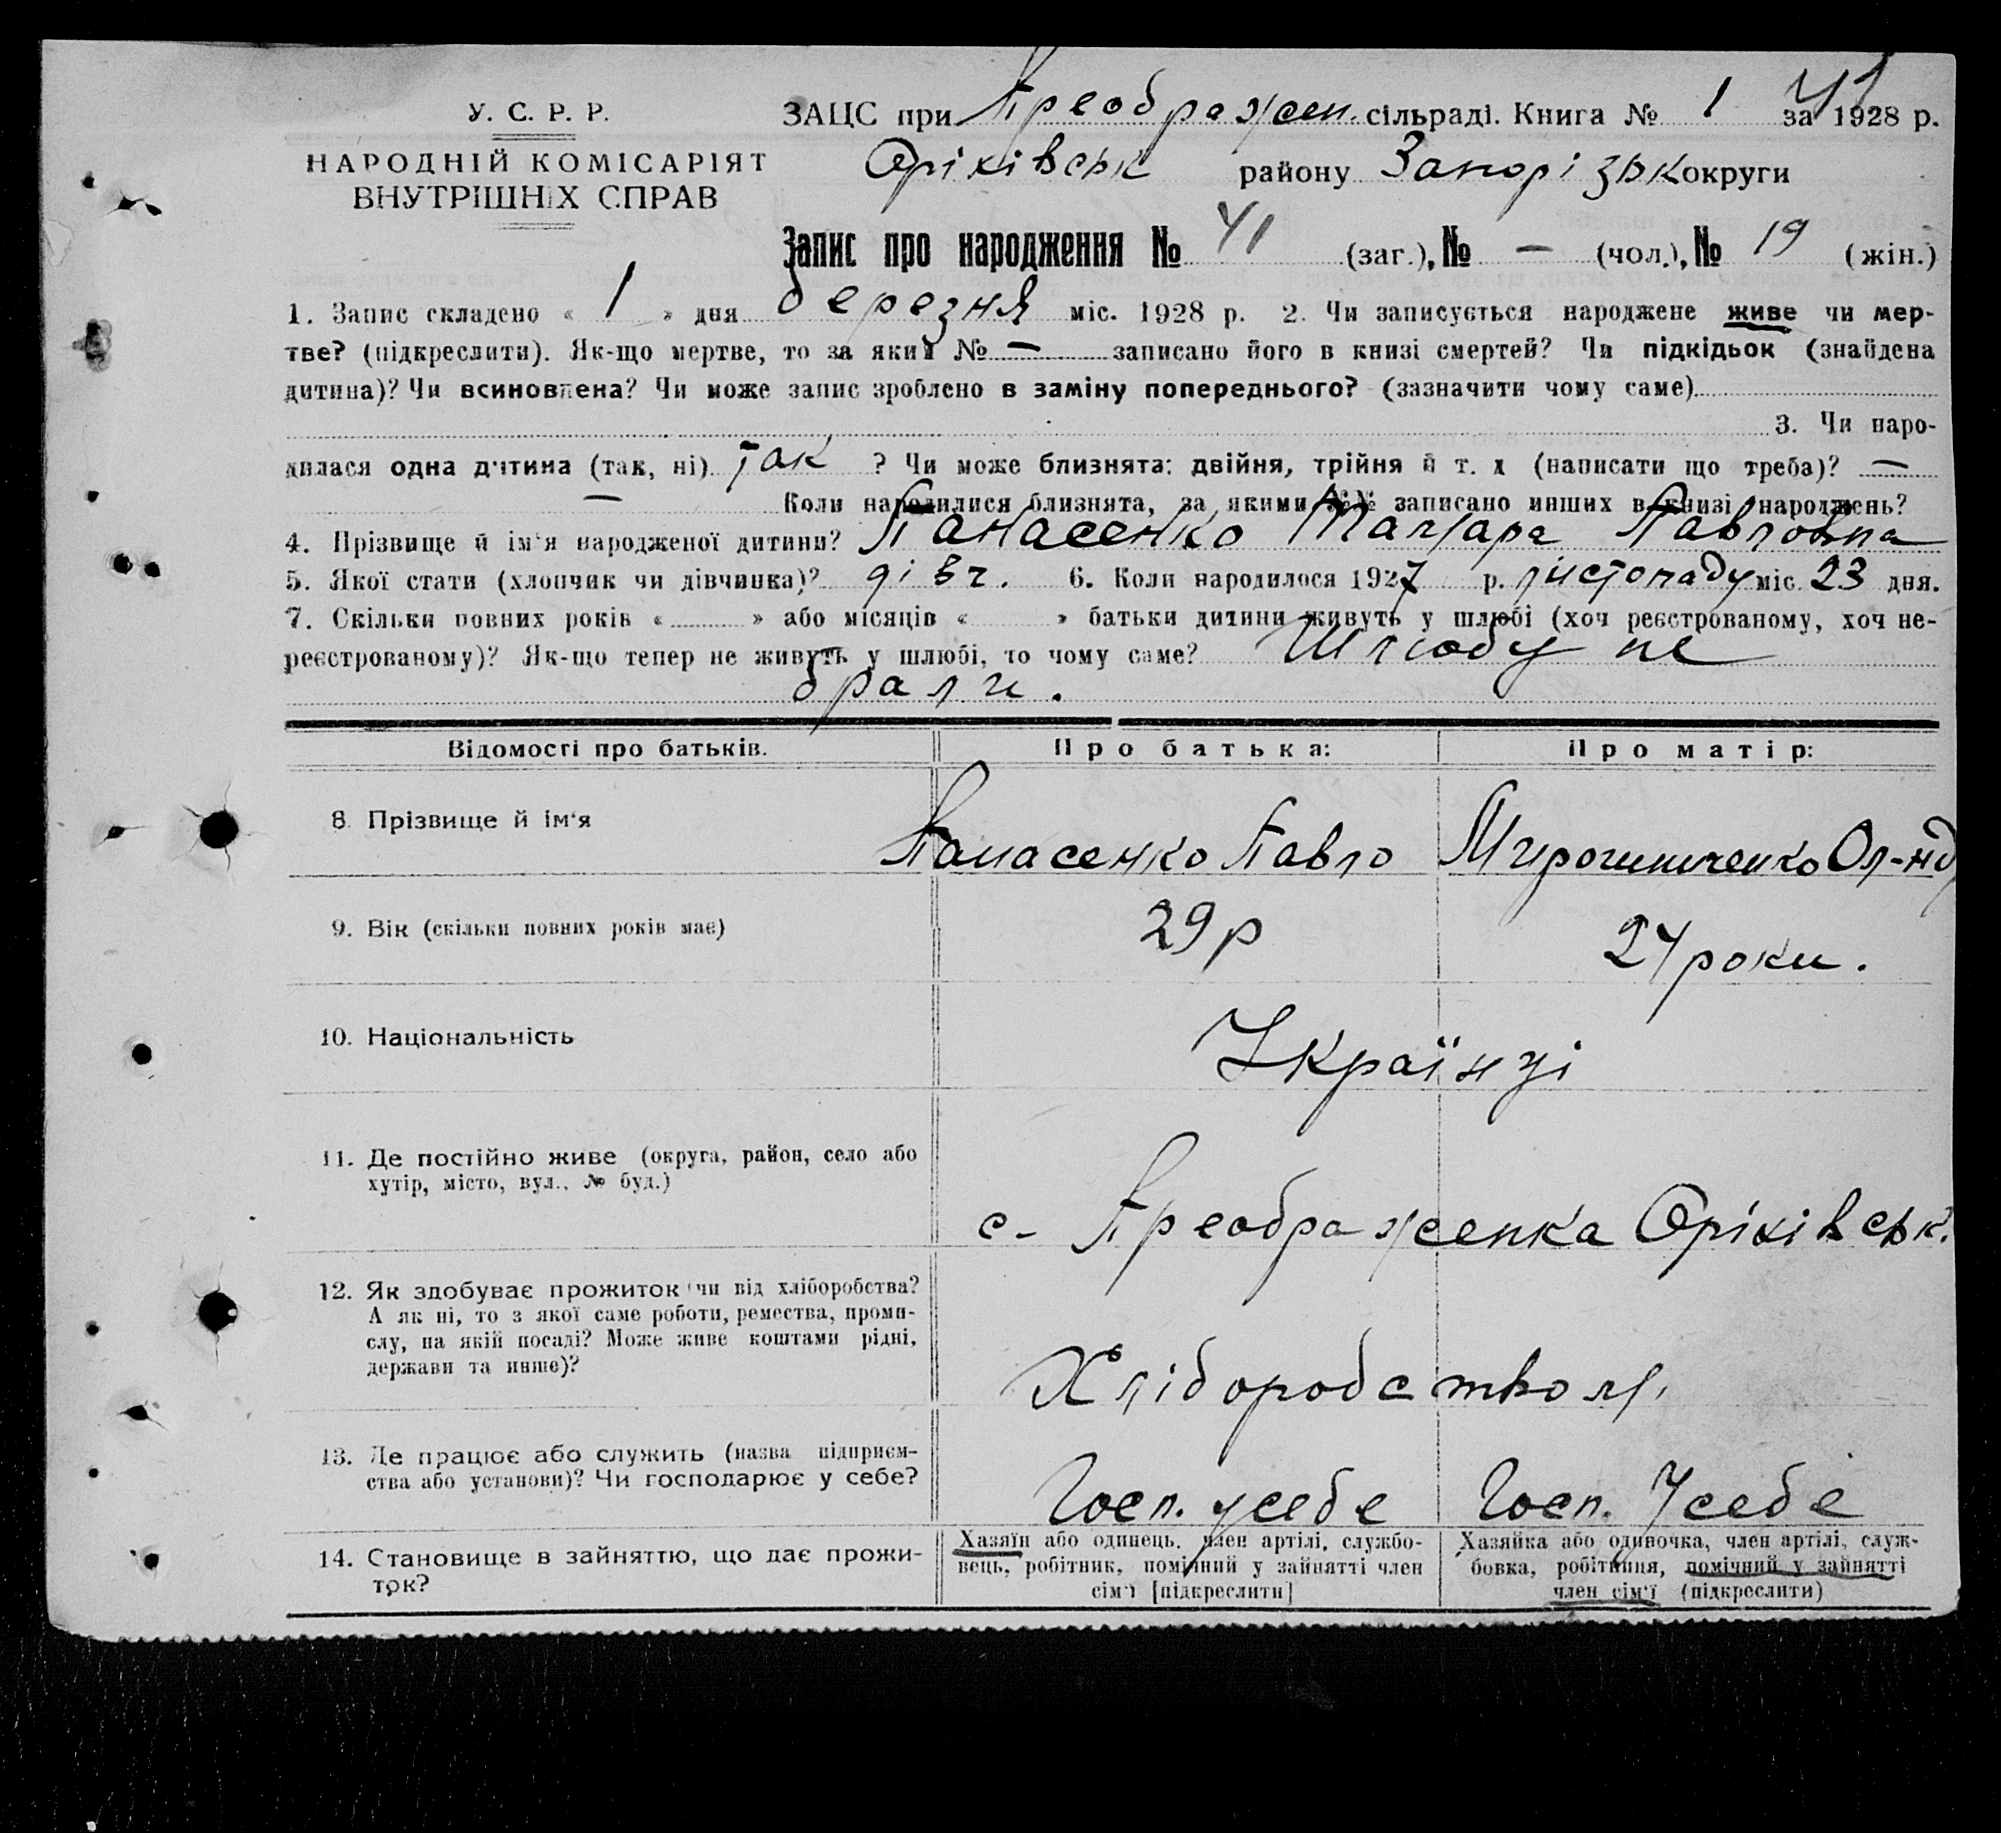 41
У. С. Р. Р.
НАРОДНІЙ КОМІСАРІЯТ
ВНУТРІШНІХ СПРАВ
ЗАЦС при Преображен. сільраді. Книга № 1 за 1928 р.
Оріхівськ району Запорізьк округи
Запис про народження № 41 (заг.), № — (чол.), № 19 (жін.)
1. Запис складено « 1 » дня березня міс. 1928 р. 2. Чи записується народжене живе чи мер-
тве? (підкреслити). Як-що мертве, то за яким № — записано його в книзі смертей? Чи підкідьок (знайдена
дитина)? Чи всиновлена? Чи може запис зроблено в заміну попереднього? (зазначити чому саме)
3. Чи наро-
дилася одна дитина (так, ні) так ? Чи може близнята: двійня, трійня й т. д (написати що треба)? —
— Коли народилися близнята, за якими №№ записано инших в книзі народжень?
4. Прізвище й ім'я народженої дитини? Панасенко Тамара Павловна
5. Якої стати (хлопчик чи дівчинка)? дівч. 6. Коли народилося 1927 р. листопаду міс. 23 дня.
7. Скільки повних років « » або місяців « » батьки дитини живуть у шлюбі (хоч реєстрованому, хоч не-
реєстрованому)? Як-що тепер не живуть у шлюбі, то чому саме? Шлюбу не
брали.
Відомості про батьків. Про батька: Про матір:
8. Прізвище й ім'я Панасенко Павло Мирошниченко Ол-нд
9. Вік (скільки повних років має) 29 р 24 роки.
10. Національність Українці
11. Де постійно живе (округа, район, село або
хутір, місто, вул., № буд.)
с- Преображенка Оріхівськ.
12. Як здобуває прожиток (чи від хліборобства?
А як ні, то з якої саме роботи, ремества, проми-
слу, на якій посаді? Може живе коштами рідні,
держави та инше)?
Хліборобством.
13. Де працює або служить (назва підприєм-
ства або установи)? Чи господарює у себе?
Госп. у себе Госп. У себе
14. Становище в зайняттю, що дає прожи-
ток?
Хазяїн або одинець, член артілі, службо-
вець, робітник, помічний у зайнятті член
сім'ї [підкреслити]
Хазяйка або одиночка, член артілі, служ-
бовка, робітниця, помічний у зайнятті
член сім'ї (підкреслити)